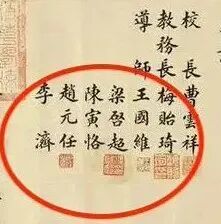 校長曹雲祥
教務長梅貽琦
導師王國維
梁啓超
陳寅恪
趙元任
李濟